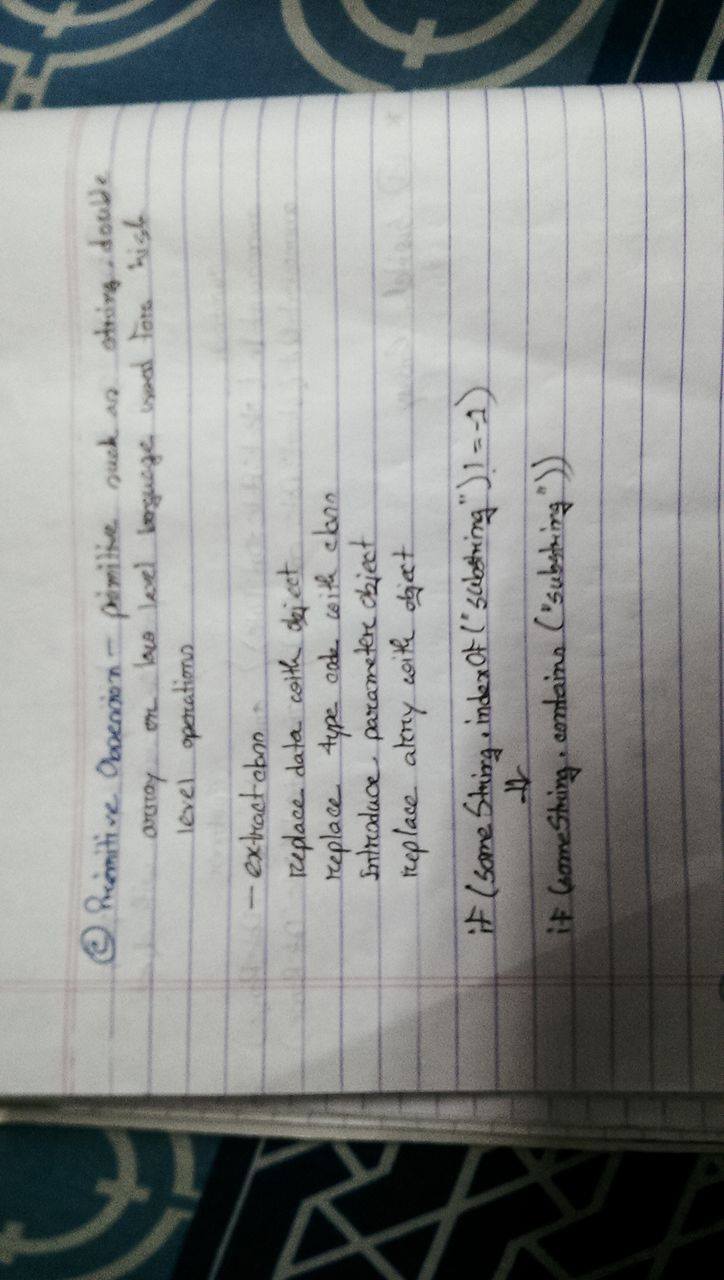 ⓒ Primitive Obsession - primitive such as string, double
array or low level language used for high
level operations
- extract class
replace data with object
replace type code with class
Introduce parameter object
replace array with object
if (someString.indexOf("substring") != -1)
⇓
if (someString.contains("substring"))